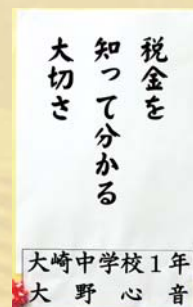 税金を
知って分かる
大切さ
大崎中学校1年
大野心音